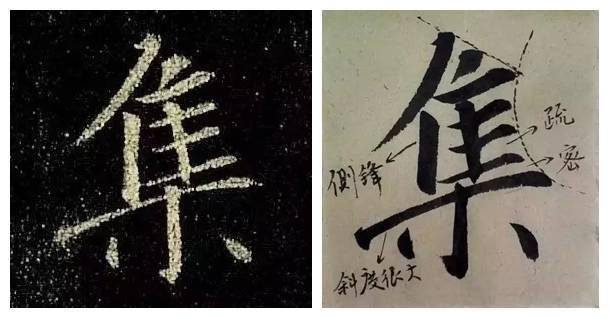 集
集
疏
密
侧锋
斜度很大